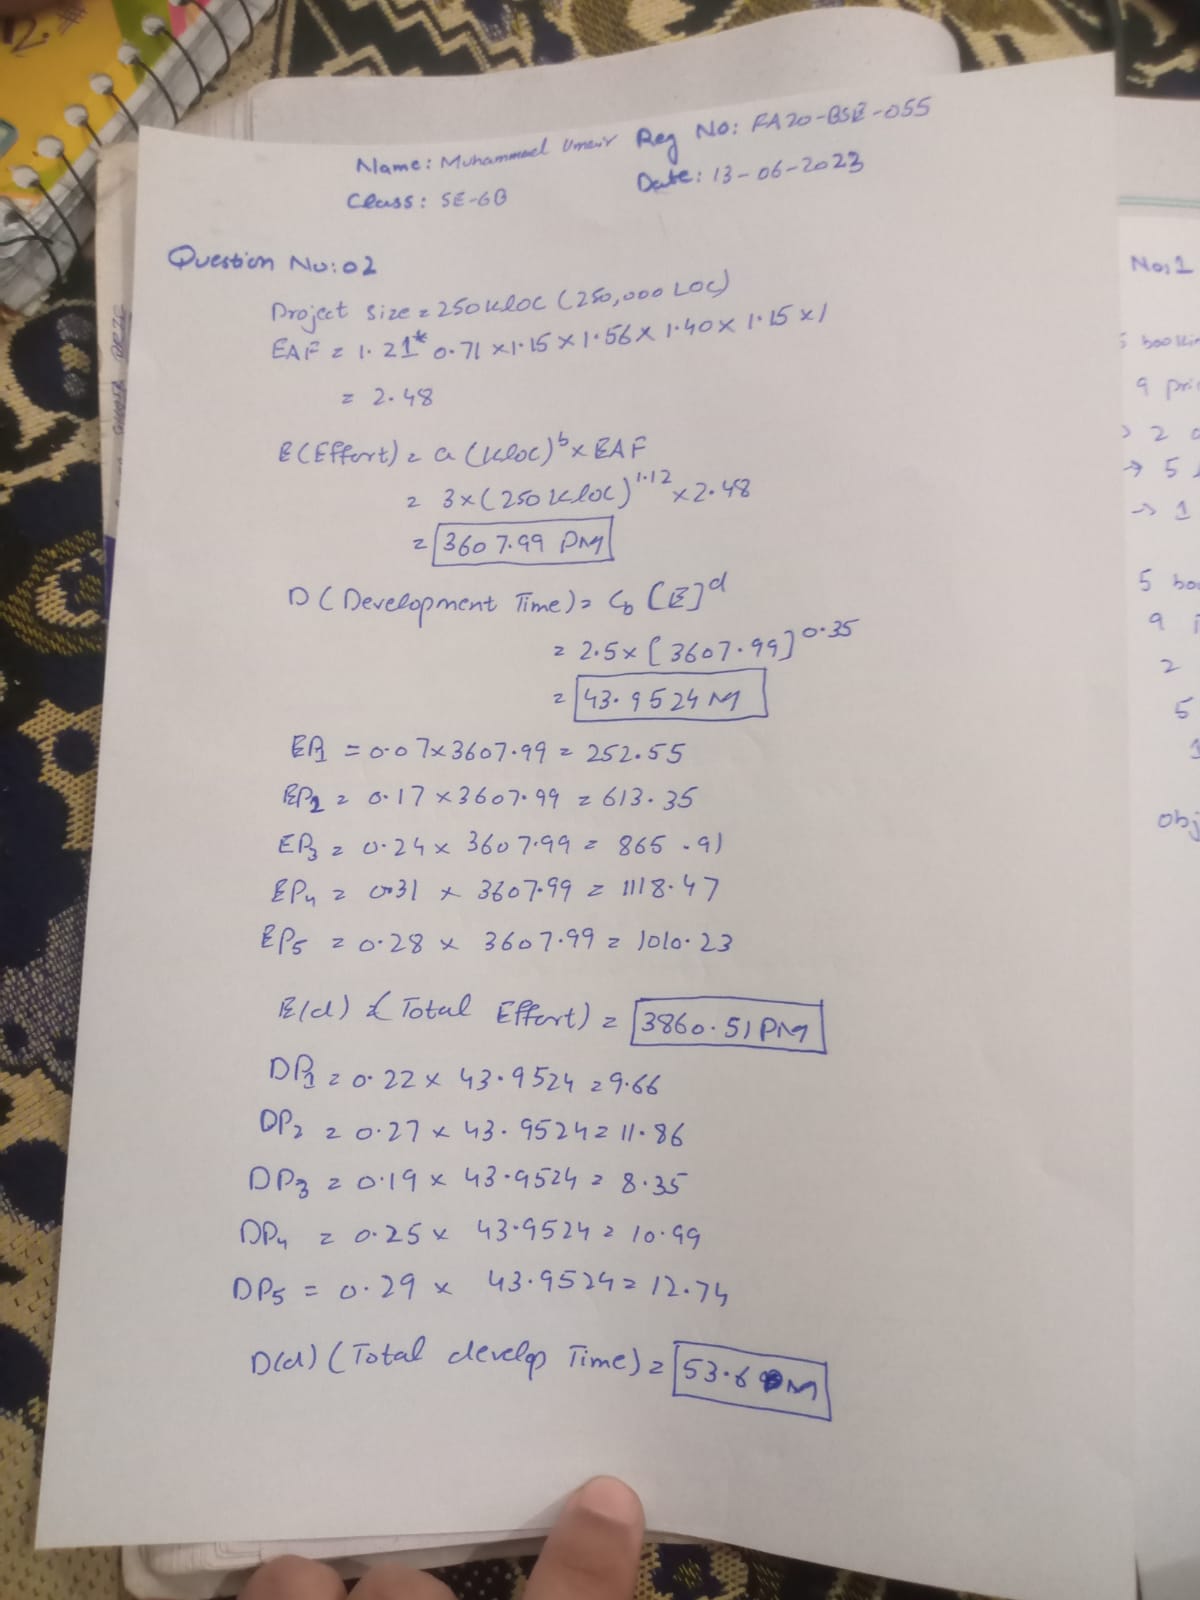 Name: Muhammad Umair Reg No: FA20-BSE-055
Class: SE-6B Date: 13-06-2023
Question No: 02
Project size = 250KLOC (250,000 LOC)
EAF = 1.21* 0.71 x 1.15 x 1.56 x 1.40 x 1.15 x 1
= 2.48
E(Effort) = a (KLOC)^b x EAF
= 3 x (250 KLOC)^1.12 x 2.48
= 3607.99 PM
D (Development Time) = Cb [E]^d
= 2.5 x [3607.99]^0.35
= 43.9524 M
EP1 = 0.07 x 3607.99 = 252.55
EP2 = 0.17 x 3607.99 = 613.35
EP3 = 0.24 x 3607.99 = 865.91
EP4 = 0.31 x 3607.99 = 1118.47
EP5 = 0.28 x 3607.99 = 1010.23
E(d) (Total Effort) = 3860.51 PM
DP1 = 0.22 x 43.9524 = 9.66
DP2 = 0.27 x 43.9524 = 11.86
DP3 = 0.19 x 43.9524 = 8.35
DP4 = 0.25 x 43.9524 = 10.99
DP5 = 0.29 x 43.9524 = 12.74
D(d) (Total develop Time) = 53.6 M
No: 1
5
9
2
→ 5
→ 1
5
9
2
5
1
obj